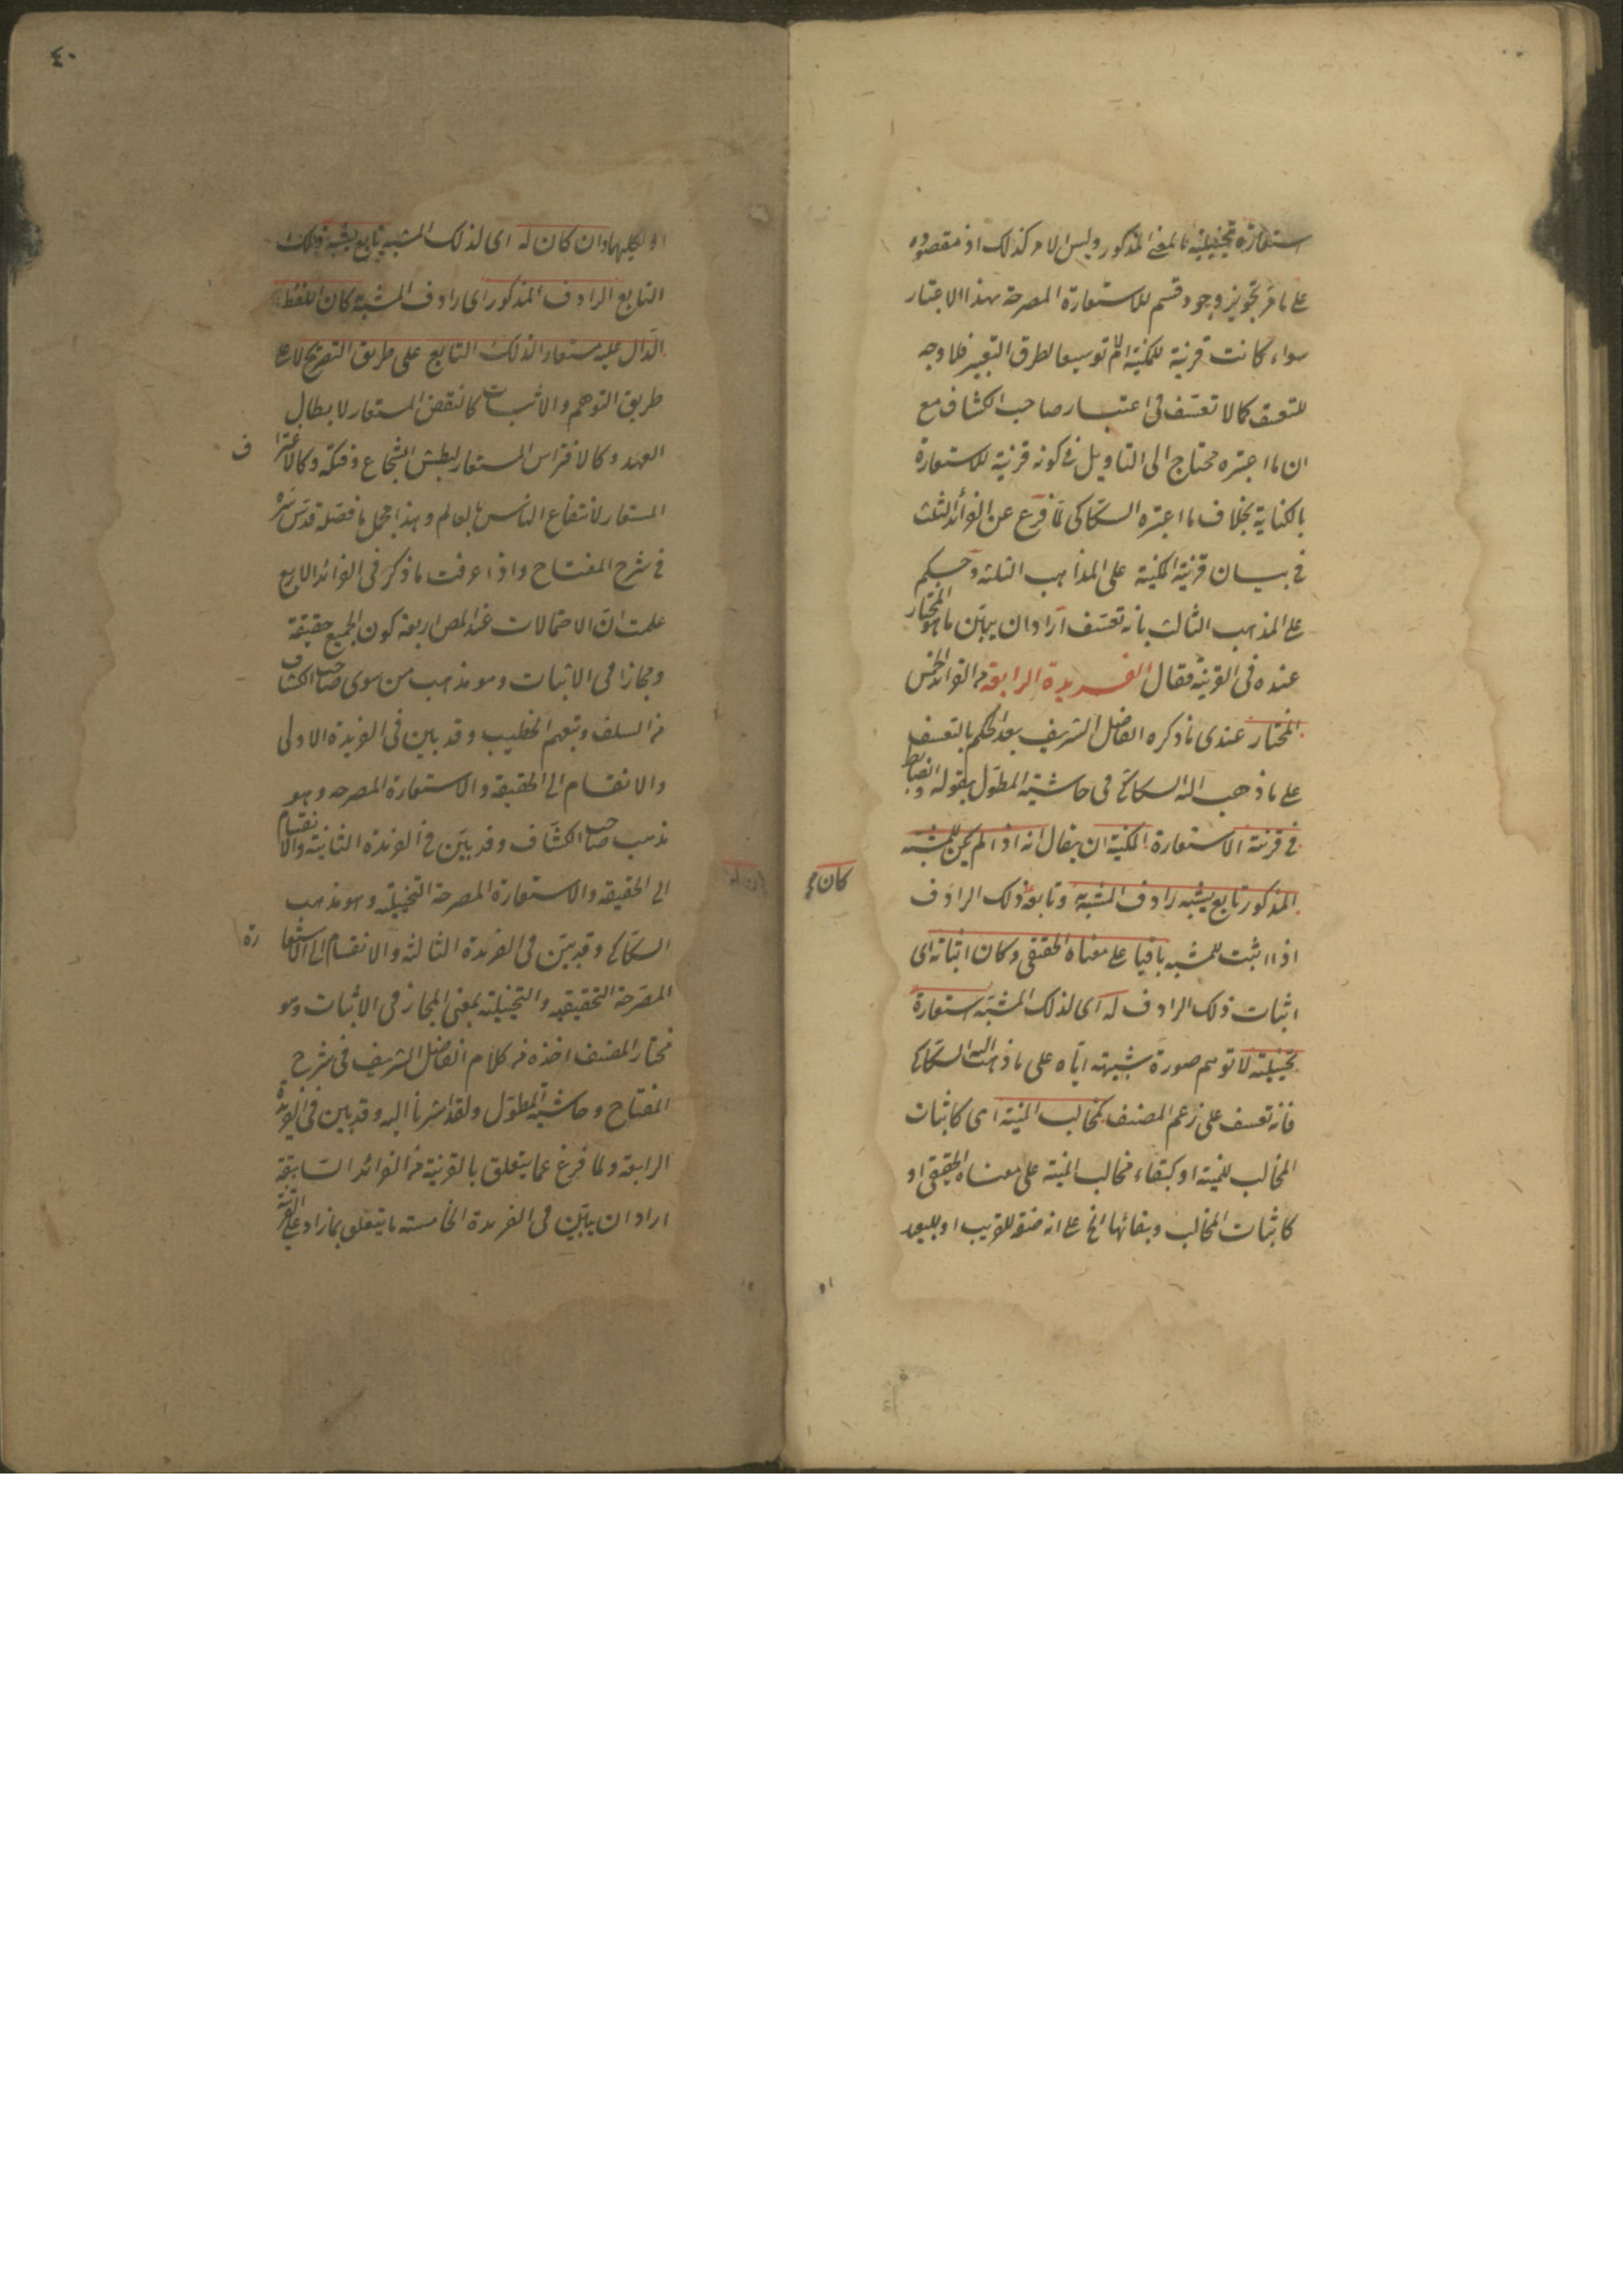 استعارة تخييلية بالمعنى المذكور وليس الامر كذلك اذ مقصوده
على ما مر تجويز وجود قسم للاستعارة المصرحة بهذا الاعتبار
سواء كانت قرينة للمكنية ام لا توسيعا لطرق التعبير فلا وجه
للتعسف كما لا تعسف فى اعتبار صاحب الكشاف مع
ان ما اعتبره محتاج الى التاويل فى كونه قرينة للاستعارة
بالكناية بخلاف ما اعتبره السكاكى لما فرغ عن الفرائد الثلث
فى بيان قرينة المكنية على المذاهب الثلثة وحكم
على المذهب الثالث بانه تعسف اراد ان يبين ما هو المختار
عنده فى القرينة فقال الفريدة الرابعة من الفوائد الخمس
المختار عندى ما ذكره الفاضل الشريف بعد الحكم بالتعسف
على ما ذهب اليه السكاكى فى حاشية المطول بقوله وضابط
فى قرينة الاستعارة المكنية ان يقال انه اذا لم يكن للمشبه
المذكور تابع يشبه رادف المشبه به وتابعه ذلك الرادف
كان
اذا اثبت للمشبه باقيا على معناه الحقيقى وكان اثباته اى
اثبات ذلك الرادف له اى لذلك المشبه استعارة
تخييلية لا توهم صورة شبيهته اياه على ما ذهب اليه السكاكى
فانه تعسف على زعم المصنف كمخالب المنية اى كاثبات
المخالب للمنية او كبقاء مخالب المنية على معناه الحقيقى او
كاثبات المخالب وبقائها الخ على انه صفة للقريب او للبعيد
٤٠
او لكليهما وان كان له اى لذلك المشبه تابع يشبه ذلك
التابع الرادف المذكور اى رادف المشبه به كان اللفظ
الدال عليه مستعارا لذلك التابع على طريق التصريح لا على
طريق التوهم والاثبات كالنقض المستعار لابطال
العهد وكالافتراس المستعار لبطش الشجاع وفتكه وكالاغترا ف
المستعار لانتفاع الناس بالعالم وهذا مجمل ما فصله قدس سره
فى شرح المفتاح واذا عرفت ما ذكر فى الفوائد الاربع
علمت ان الاحتمالات عند المص اربعة كون الجميع حقيقة
ومجازا فى الاثبات وهو مذهب من سوى صاحب الكشاف
من السلف وتبعهم الخطيب وقد بين فى الفريدة الاولى
والانقسام الى الحقيقة والاستعارة المصرحه وهو
مذهب صاحب الكشاف وقد بين فى الفريدة الثانية والانقسام
الى الحقيقة والاستعارة المصرحة التخييلية وهو مذهب
السكاكى وقد بين فى الفريدة الثالثة والانقسام الى الاستعا رة
المصرحة التحقيقية والتخييلية بمعنى المجاز فى الاثبات وهو
مختار المصنف اخذه من كلام الفاضل الشريف فى شرح
المفتاح وحاشية المطول ولقد اشرنا اليه وقد بين فى الفريدة
الرابعة ولما فرغ عما يتعلق بالقرينة من الفوائد السابقة
اراد ان يبين فى الفريدة الخامسة ما يتعلق بما زاد على القرينة